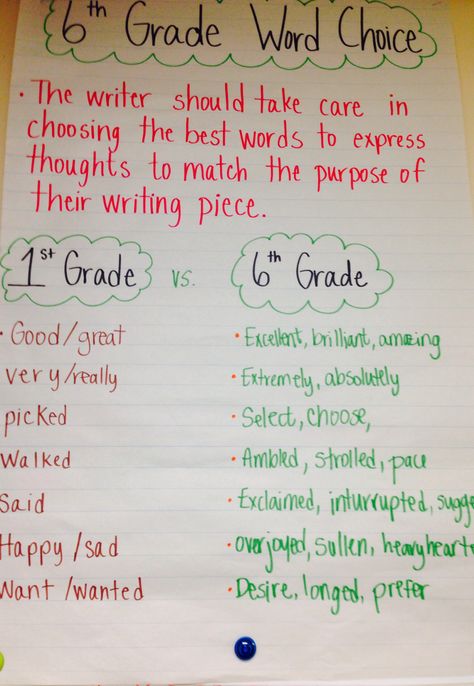 6th Grade Word Choice
• The writer should take care in
choosing the best words to express
thoughts to match the purpose of
their writing piece.
1st Grade vs. 6th Grade
• Good/great • Excellent, brilliant, amazing
very/really • Extremely, absolutely
picked • Select, choose,
Walked • Ambled, strolled, pace
Said • Exclaimed, inturrupted, sugge
Happy/sad • overjoyed, sullen, heavyheart
Want/wanted • Desire, longed, prefer